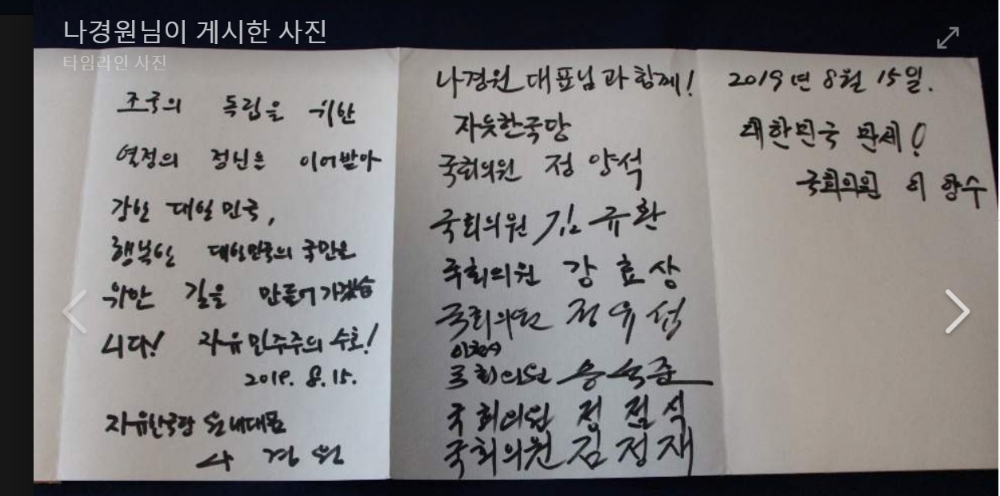 나경원님이 게시한 사진
타임라인 사진
조국의 독립을 위한
열정의 정신을 이어받아
강한 대한민국,
행복한 대한민국의 국민을
위한 길을 만들어가겠습
니다! 자유민주주의 수호!
2019. 8. 15.
자유한국당 원내대표
나 경 원
나경원 대표님과 함께!
자유한국당
국회의원 정 양석
국회의원 김규환
국회의원 강 효 상
국회의원 정 유 섭
국회의원
국회의원 정 점 식
국회의원 김정재
2019년 8월 15일.
대한민국 만세!
국회의원 이 만 수